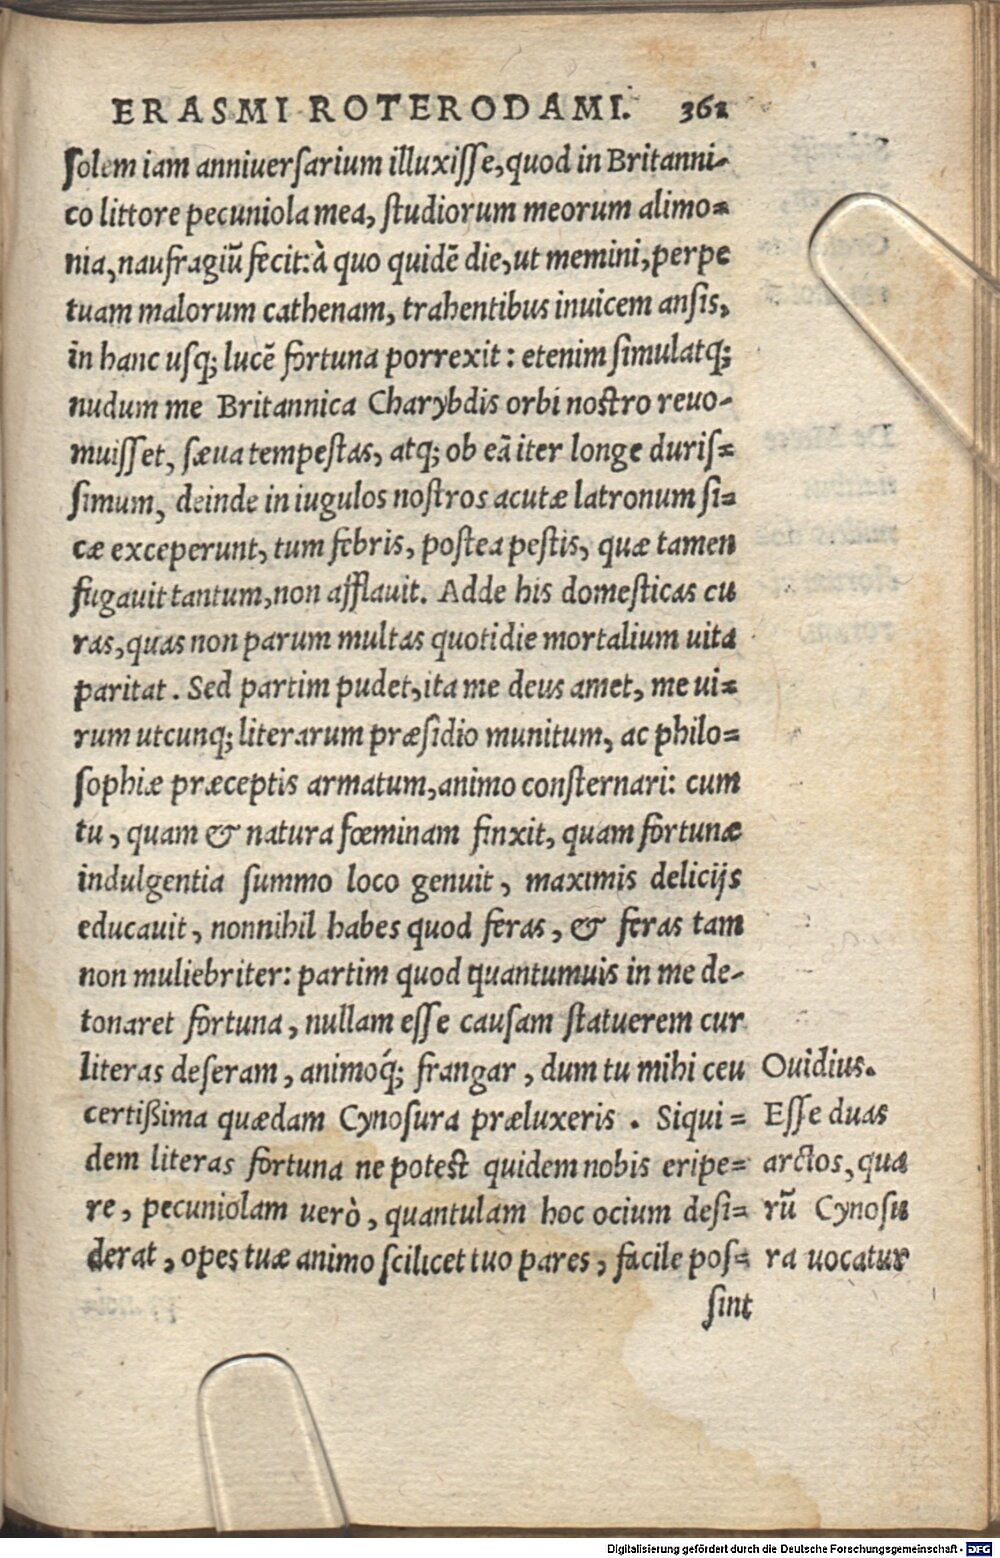 ERASMI ROTERODAMI. 361
ſolem iam anniuerſarium illuxiſſe, quod in Britanni-
co littore pecuniola mea, ſtudiorum meorum alimo=
nia, naufragiũ fecit: à quo quidẽ die, ut memini, perpe
tuam malorum cathenam, trahentibus inuicem anſis,
in hanc uſq; lucẽ fortuna porrexit: etenim ſimulatq;
nudum me Britannica Charybdis orbi noſtro reuo-
muiſſet, ſæua tempeſtas, atq; ob eã iter longe duriſ=
ſimum, deinde in iugulos noſtros acutæ latronum ſi=
cæ exceperunt, tum febris, poſtea peſtis, quæ tamen
fugauit tantum, non afflauit. Adde his domeſticas cu
ras, quas non parum multas quotidie mortalium uita
paritat. Sed partim pudet, ita me deus amet, me ui=
rum utcunq; literarum præſidio munitum, ac philo=
ſophiæ præceptis armatum, animo conſternari: cum
tu, quam & natura fœminam finxit, quam fortunæ
indulgentia ſummo loco genuit, maximis delicijs
educauit, nonnihil habes quod feras, & feras tam
non muliebriter: partim quod quantumuis in me de-
tonaret fortuna, nullam eſſe cauſam ſtatuerem cur
literas deſeram, animoq́; frangar, dum tu mihi ceu
certißima quædam Cynoſura præluxeris. Siqui=
dem literas fortuna ne poteſt quidem nobis eripe=
re, pecuniolam uerò, quantulam hoc ocium deſi=
derat, opes tuæ animo ſcilicet tuo pares, facile poſ=
ſint
Ouidius.
Eſſe duas
arctos, qua
rũ Cynoſu
ra uocatur
Digitalisierung gefördert durch die Deutsche Forschungsgemeinschaft - DFG